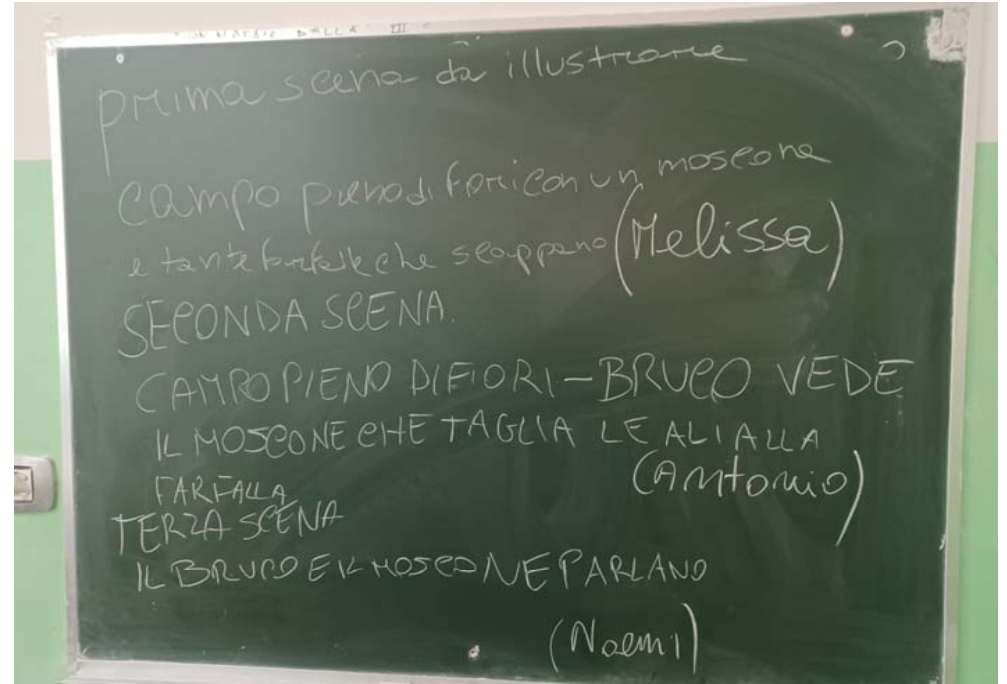 prima scena da illustrare
campo pieno di fiori con un moscone
e tante farfalle che scappano (Melissa)
SECONDA SCENA.
CAMPO PIENO DI FIORI - BRUCO VEDE
IL MOSCONE CHE TAGLIA LE ALI ALLA
FARFALLA (Antonio)
TERZA SCENA
IL BRUCO E IL MOSCONE PARLANO
(Noemi)